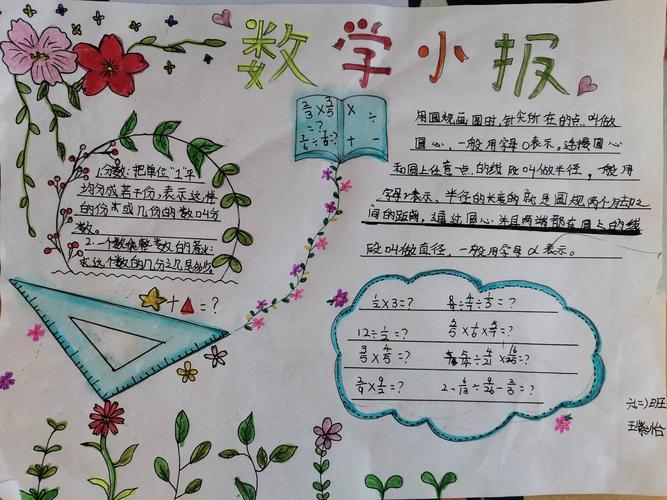 数学小报
2/3×3/5
=?
×
÷
+
−
1.分数:把单位"1"平
均分成若干份,表示这样
的份或几份的数叫分
数。
2.一个数乘整数的意义:
求这个数的几分之几是多少
用圆规画圆时,针尖所在的点叫做
圆心,一般用字母O表示。连接圆心
和圆上任意点的线段叫做半径,一般用
字母r表示、半径的长度就是圆规两个角之
间的距离,通过圆心并且两端都在圆上的线
段叫做直径,一般用字母d表示。
+ = ?
1/2×3=?
12÷1/2=?
3/5×4/5=?
2/9×9/2=?
六(二)班